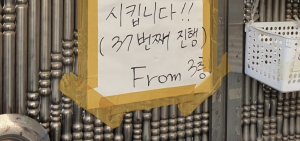 시킵니다!!
(37번째 진행)
From 3층